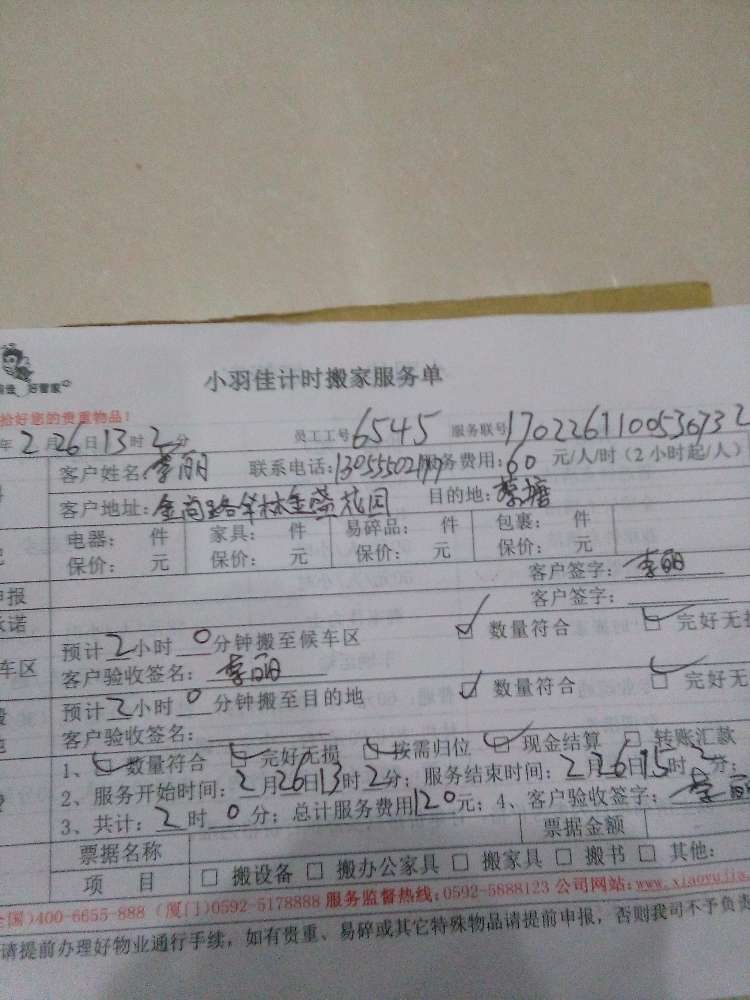 好管家
小羽佳计时搬家服务单
拾好您的贵重物品!
年2月26日13时2分 员工工号6545 服务联号
客户姓名:李丽 联系电话: 务费用:60元/人/时(2小时起/人)
客户地址:金尚路 金盛花园 目的地:蔡塘
电器: 件 家具: 件 易碎品: 件 包裹: 件
保价: 元 保价: 元 保价: 元 保价: 元
客户签字:李丽
申报
客户签字:
承诺
预计2小时0分钟搬至候车区 ☑数量符合 ☑完好无损
车区
客户验收签名:李丽
预计2小时0分钟搬至目的地 ☑数量符合 ☑完好无
客户验收签名:
1、☑数量符合 ☑完好无损 ☑按需归位 ☑现金结算 □转账汇款
2、服务开始时间:2月26日13时2分;服务结束时间:2月26日15时2分;
3、共计:2时0分;总计服务费用120元;4、客户验收签字:李丽
票据名称 票据金额
项 目 □搬设备 □搬办公家具 □搬家具 □搬书 □其他:
全国)400-6655-888 (厦门)0592-5178888 服务监督热线:0592-5888123 公司网站:www.xiaoyujia.
请提前办理好物业通行手续,如有贵重、易碎或其它特殊物品请提前申报,否则我司不予负责